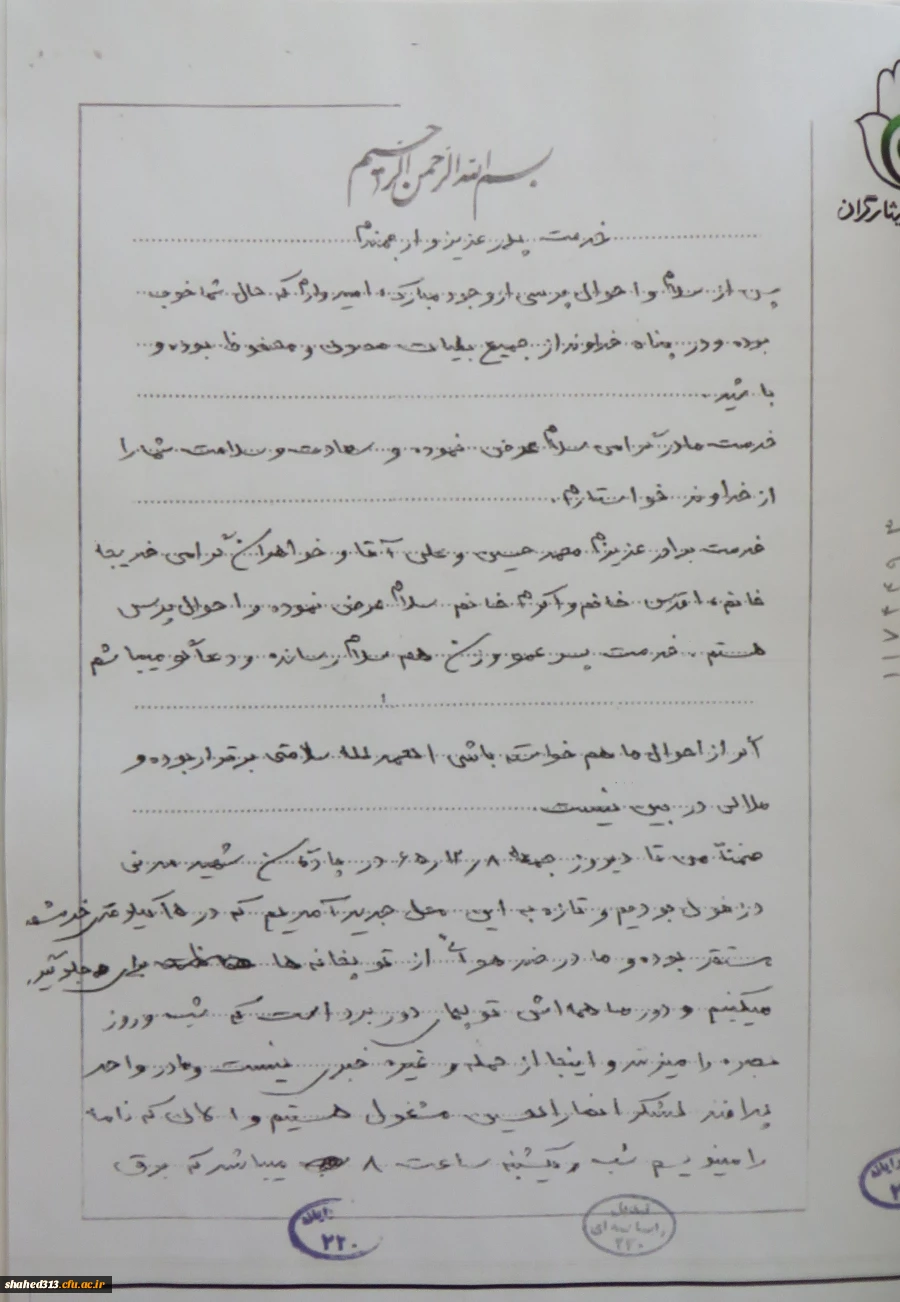 بسم الله الرحمن الرحیم
خدمت پدر عزیز و ارجمندم
پس از سلام و احوال پرسی از وجود مبارک، امیدوارم که حال شما خوب
بوده و در پناه خداوند از جمیع بلیات مصون و محفوظ بوده و
باشید.
خدمت مادر گرامی سلام عرض نموده و سعادت و سلامت شما را
از خداوند خواستارم.
خدمت برادر عزیزم محمد حسین و علی آقا و خواهران گرامی خدیجه
خانم، اقدس خانم و اکرم خانم سلام عرض نموده و احوال پرس
هستم. خدمت پسر عمو و زن هم سلام رسانده و دعاگو میباشم
اگر از احوال ما هم خواسته باشی الحمد لله سلامتی برقرار بوده و
ملالی در بین نیست
ضمناً من تا دیروز جمعه ۸ر۱۲ر۶۵ در پادگان شهید مدنی
دزفول بودیم و تازه به این محل جدید آمدیم که در ۱۵ کیلومتری خرمشهر
مستقر بوده و ما در ضد هوائی از توپخانه ها برای جلوگیری
میکنیم و دور ما همه اش توپهای دور برد است که شب و روز
بصره را میزنند و اینجا از حمله و غیره خبری نیست و ما در واحد
پدافند لشکر انصارالحسین مشغول هستیم و الان که نامه
را مینویسم شب یکشنبه ساعت ۸ میباشد که برق
ایثارگران
۱۱۷۴۴۹۳
۲۲۰
۲۲۰
shahed313.cfu.ac.ir